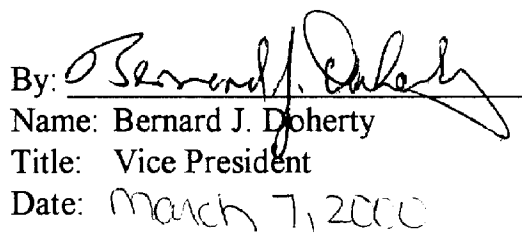 By: Bernard J. Doherty
Name: Bernard J. Doherty
Title: Vice President
Date: March 7, 2000